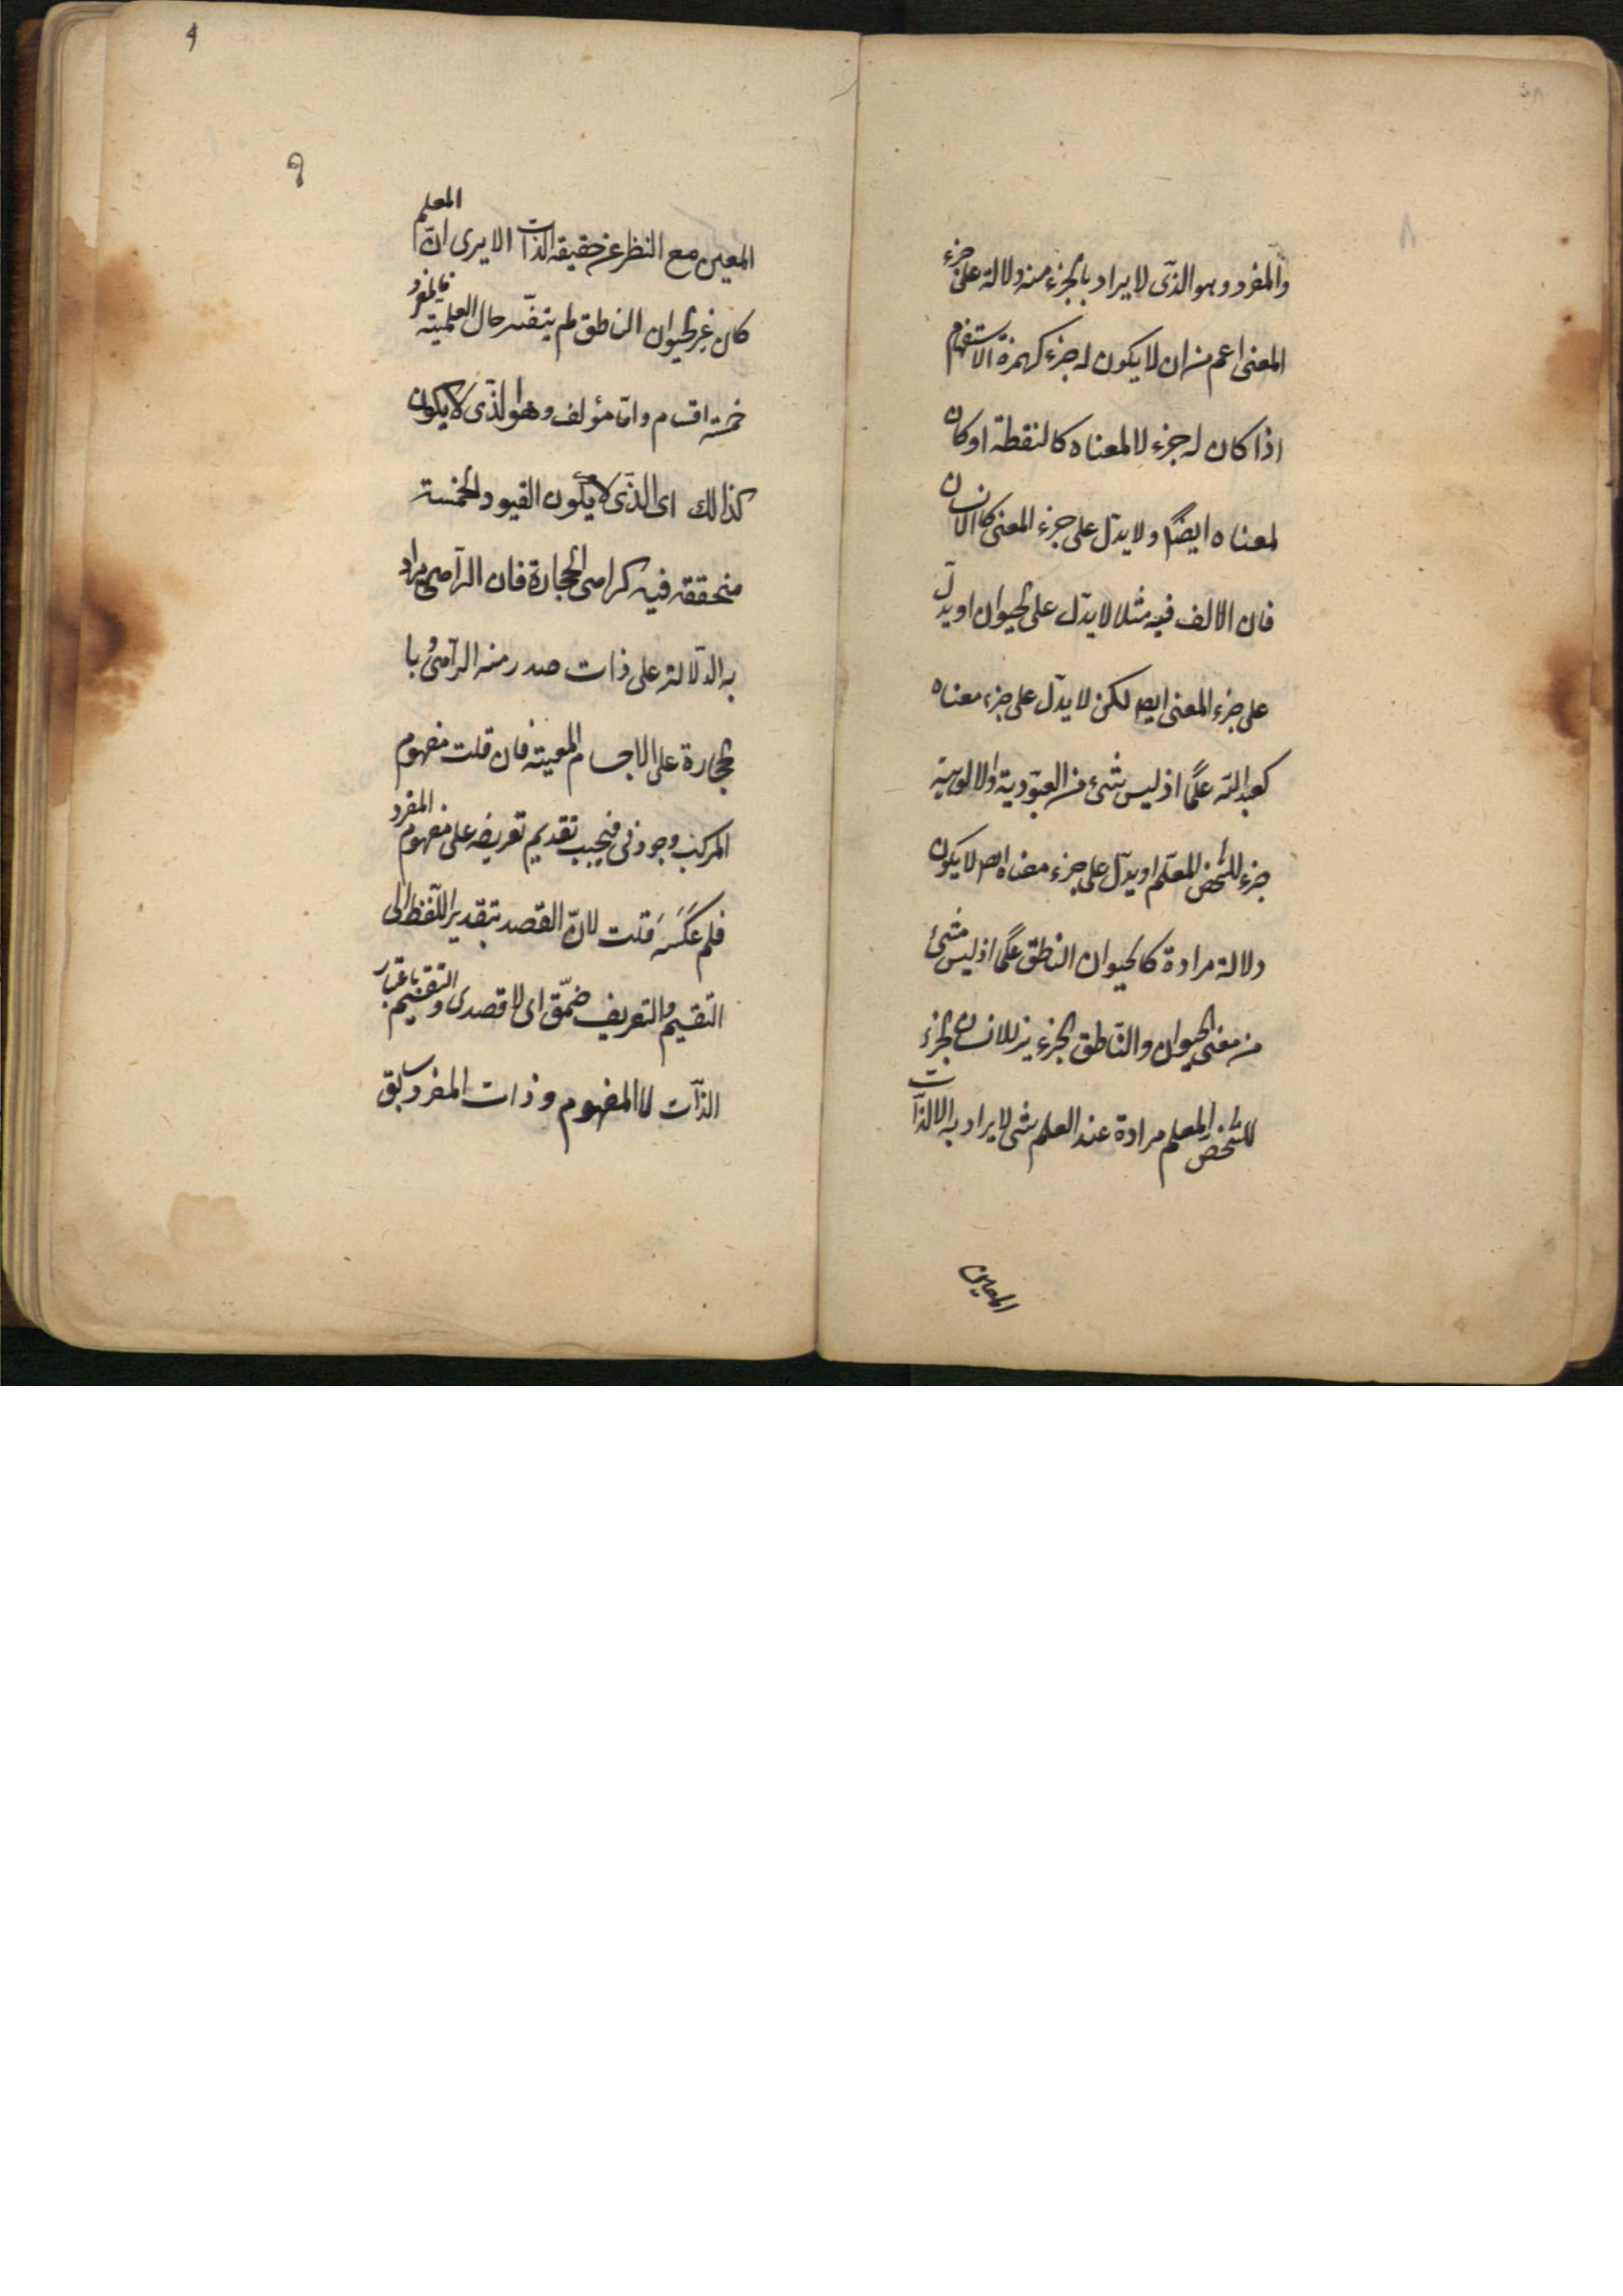 ٨
والمفرد وهو الذى لا يراد بالجزء منه دلالة على جزء
المعنى اعم من ان لا يكون له جزء كهمزة الاستفهام
اذا كان له جزء لا لمعناه كالنقطة او كان
لمعناه ايضًا ولا يدلّ على جزء المعنى كالانسان
فان الالف فيه مثلا لا يدّل على الحيوان او يدلّ
على جزء المعنى ايضا لكن لا يدلّ على جزء معناه
كعبد الله علمًا اذ ليس شئ من العبودية والالوهية
جزء للشخص المعلم او يدلّ على جزء معناه لا يكون
دلالة مرادة كالحيوان الناطق علمًا اذ ليس شئ
من معنى الحيوان والنّاطق الجزء للانسان الجزء
للشخص المعلم مرادة عند العلم شى لا يراد به الا الذّات
المعين
٩
المعين مع النظر عن حقيقة الذات الا يرى انّ المعلم
كان غير الحيوان الناطق لم يتغيّر حال العلمية فالمفرد
خمسة اقسام وامّا مؤلف وهو الذّى لا يكون
كذالك اى الذّى لا يكون القيود الخمسة
متحققه فيه كرامى الحجارة فان الرّامى يراد
به الدّلالة على ذات صدر منه الرّامىُ با
لحجارة على الاجسام المعينة فان قلت مفهوم
المركب وجودى فيجب تقديم تعريفه على مفهوم المفرد
فلم عَكَسَ قلت لانّ القصد بتقدير اللّفظ الى
التقسيم والتعريف ضمّنى اى لا قصدى والتقسيم باعتبار
الذّات لا المفهوم وذات المفرد سابق